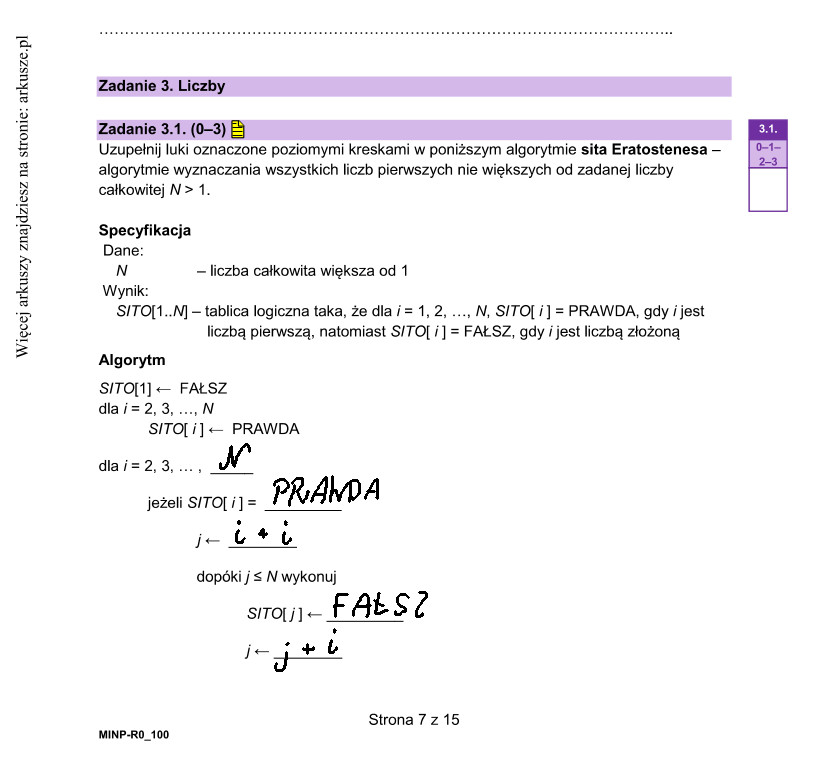 ………………………………………………………………………………………………..
Więcej arkuszy znajdziesz na stronie: arkusze.pl
Zadanie 3. Liczby
Zadanie 3.1. (0–3)
3.1.
0–1–
2–3
Uzupełnij luki oznaczone poziomymi kreskami w poniższym algorytmie sita Eratostenesa –
algorytmie wyznaczania wszystkich liczb pierwszych nie większych od zadanej liczby
całkowitej N > 1.
Specyfikacja
Dane:
N – liczba całkowita większa od 1
Wynik:
SITO[1..N] – tablica logiczna taka, że dla i = 1, 2, …, N, SITO[ i ] = PRAWDA, gdy i jest
liczbą pierwszą, natomiast SITO[ i ] = FAŁSZ, gdy i jest liczbą złożoną
Algorytm
SITO[1] ← FAŁSZ
dla i = 2, 3, …, N
SITO[ i ] ← PRAWDA
dla i = 2, 3, … , N
jeżeli SITO[ i ] = PRAWDA
j ← i + i
dopóki j ≤ N wykonuj
SITO[ j ] ← FAŁSZ
j ← j + i
Strona 7 z 15
MINP-R0_100